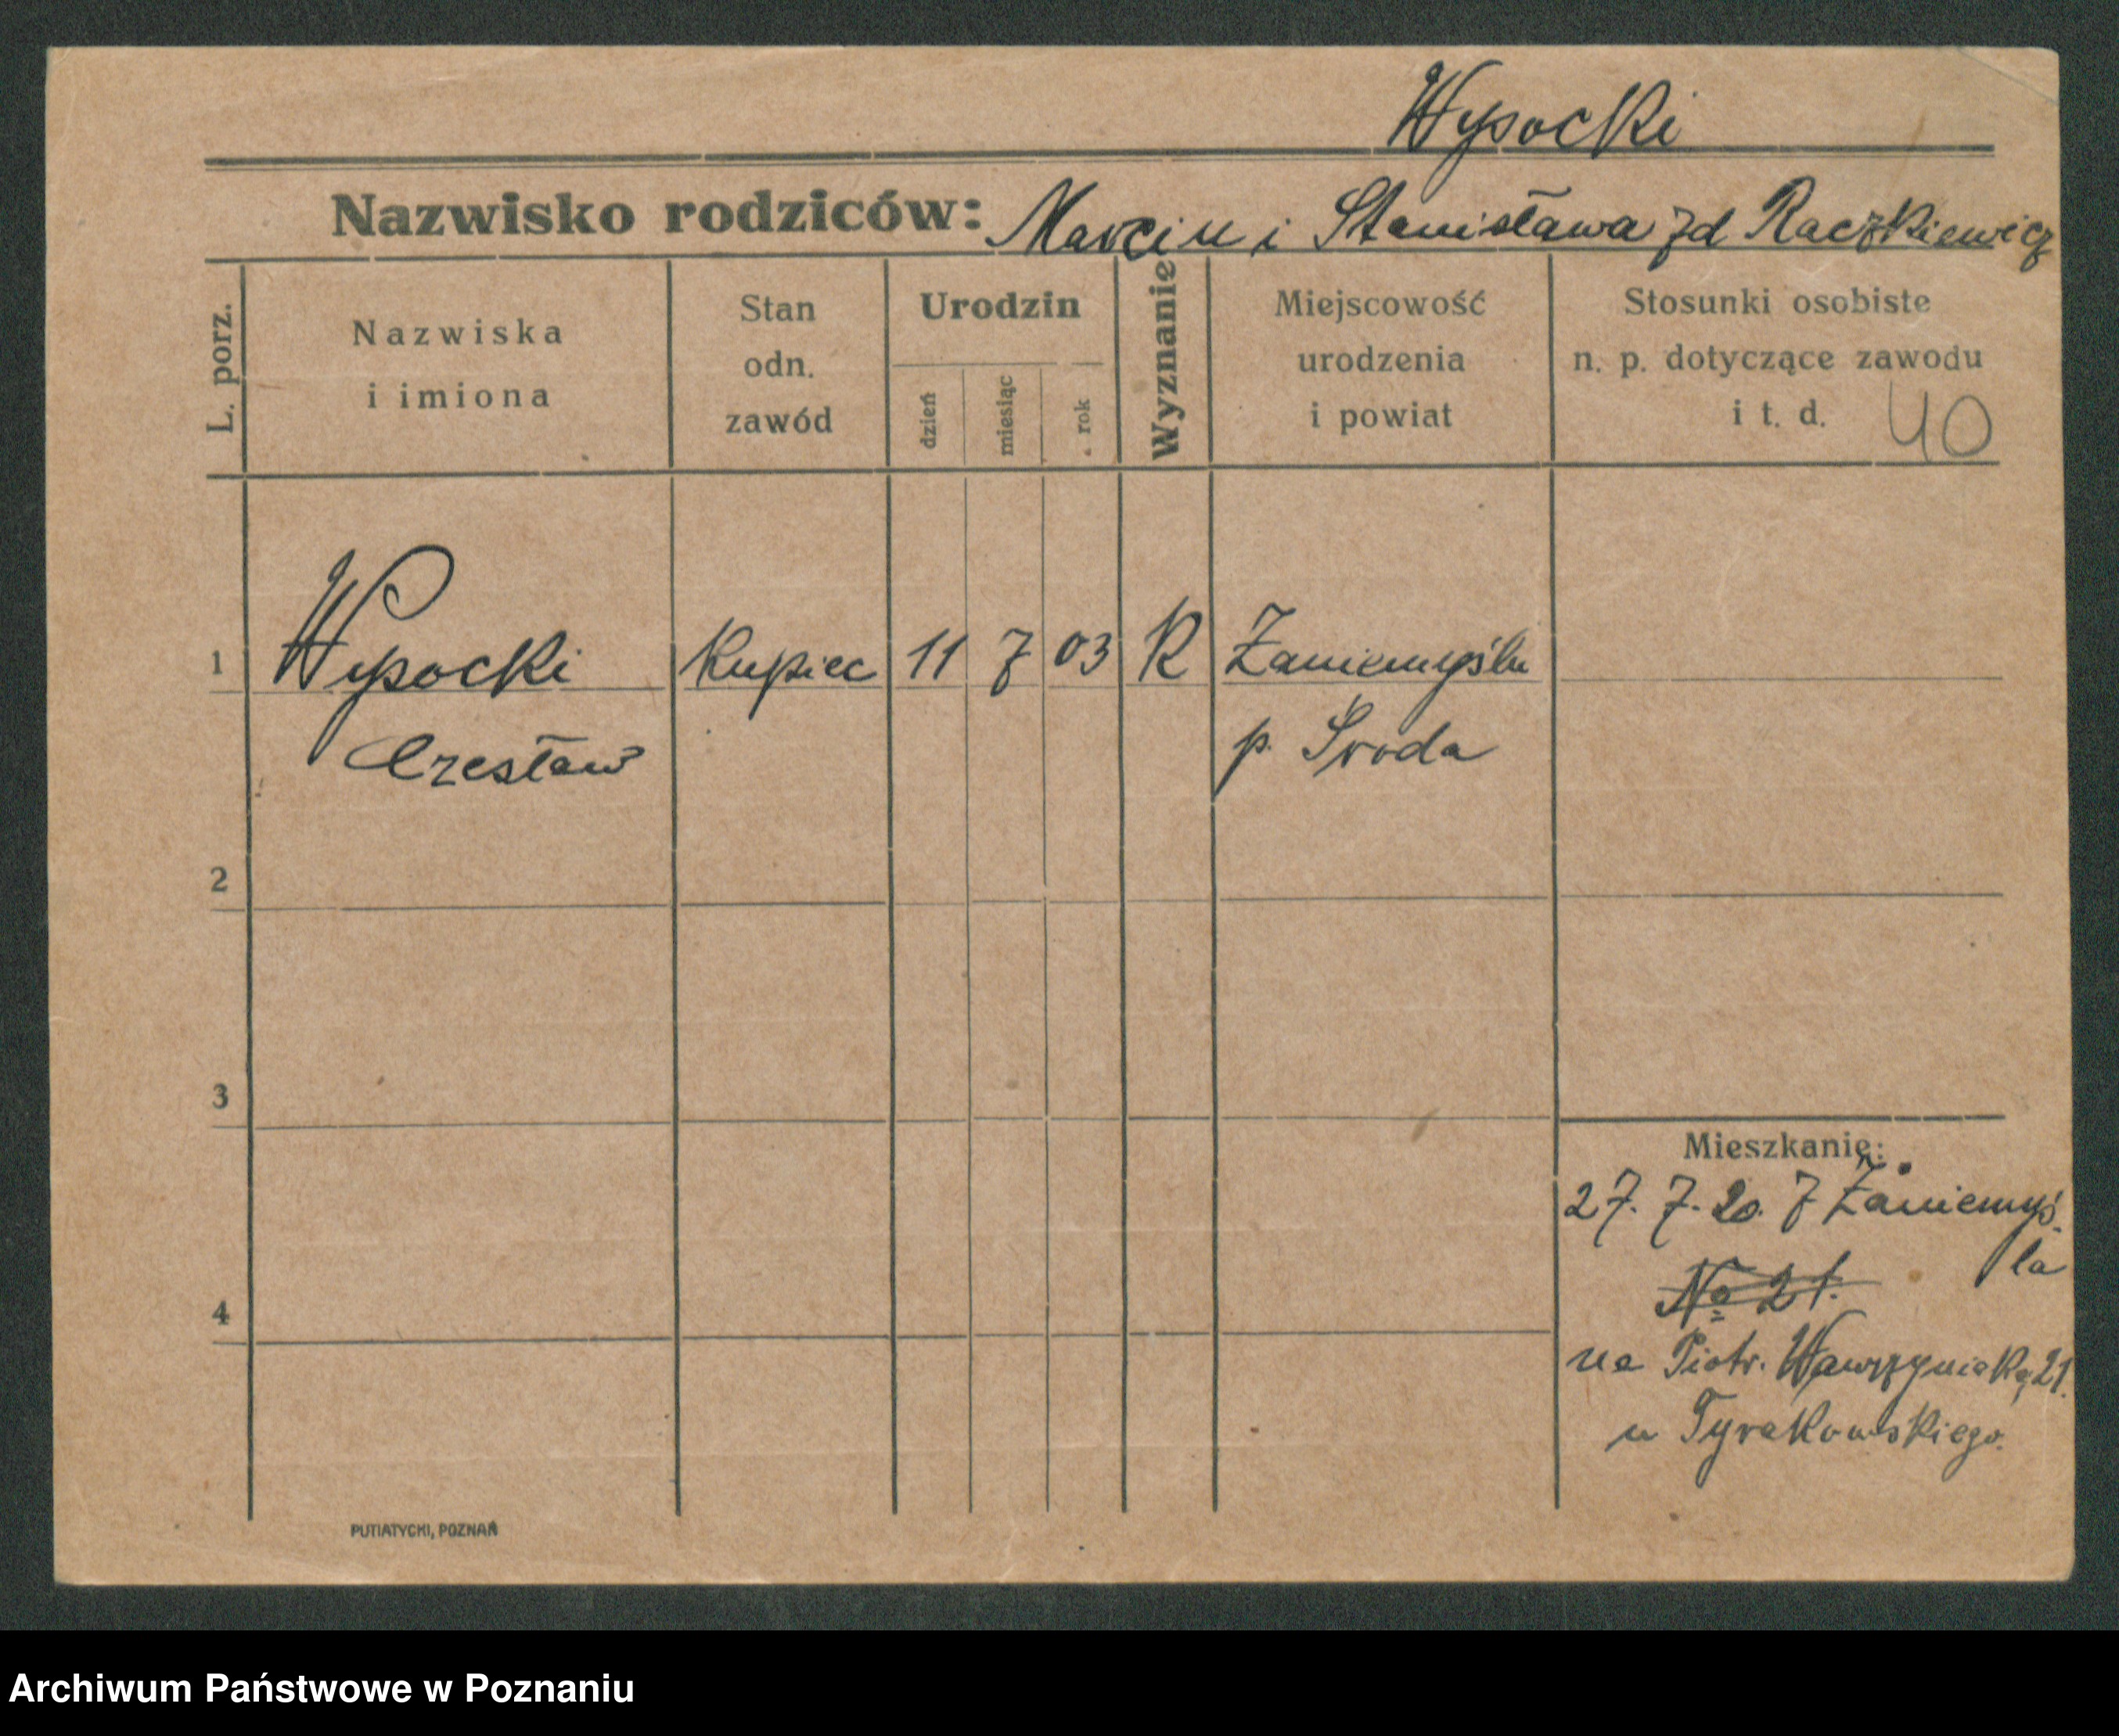 Wysocki
Nazwisko rodziców: Marcin i Stanisława zd Raczkiewicz
L. porz.
Nazwiska
i imiona
Stan
odn.
zawód
Urodzin
dzień
miesiąc
rok
Wyznanie
Miejscowość
urodzenia
i powiat
Stosunki osobiste
n. p. dotyczące zawodu
i t. d. 40
1 Wysocki Kupiec 11 7 03 R Zaniemyślu
Czesław p. Środa
2
3
Mieszkanie:
27. 7. 20. z Zaniemyś-
la
No 21.
4
na Piotr. Wawrzyniaka 21.
u Tyrakowskiego.
PUTIATYCKI, POZNAŃ
Archiwum Państwowe w Poznaniu